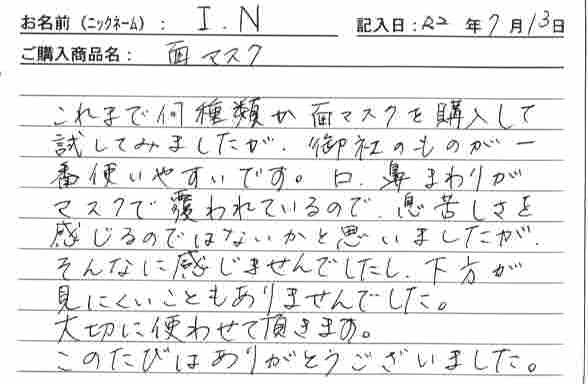 お名前（ニックネーム）： I.N 記入日：R2 年 7 月 13 日
ご購入商品名： 面マスク
これまで何種類か面マスクを購入して
試してみましたが、御社のものが一
番使いやすいです。口、鼻まわりが
マスクで覆われているので、息苦しさを
感じるのではないかと思いましたが、
そんなに感じませんでしたし、下方が
見にくいこともありませんでした。
大切に使わせて頂きます。
このたびはありがとうございました。